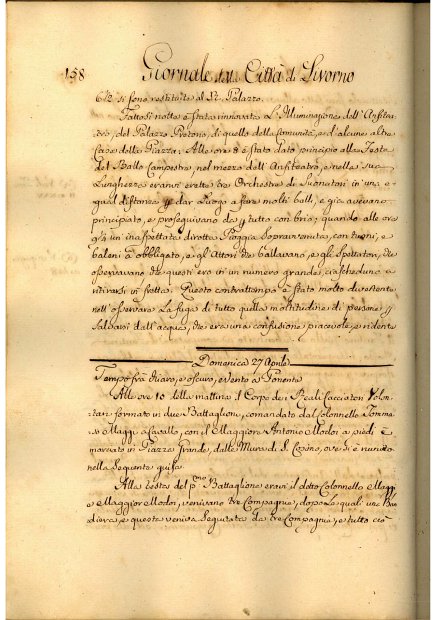 158 Giornale della Città di Livorno
6 1/2 si sono restituite al R. Palazzo.
Fattosi notte è stata rinnovata l'Illuminazione dell'Anfitea-
tro, del Palazzo Pretorio, di quello della Comunità, e d'alcune altre
Case della Piazza: Alle ore 8 è stato dato principio alla Festa
del Ballo Campestre, nel mezzo dell'Anfiteatro, e nella sua
Lunghezza eranvi erette tre Orchestre di Suonatori in una e-
gual distanza p dar Luogo a fare molti balli, e già avevano
principiato, e proseguivano da p tutto con brio; quando alle ore
9 1/4 un'inaspettata dirotta Pioggia Sopravvenuta, con tuoni, e
baleni à obbligato, e gli Attori che ballavano, e gli Spettatori, che
osservavano che questi ero in un numero grande, ciascheduno a
ritirarsi in fretta: Questo contrattempo è stato molto divertente
nell'osservare La fuga di tutta quella moltitudine di persone, p
Salvarsi dall'acqua, che era una confusione piacevole, e ridente
Domenica 27 Aprile
Tempo frà chiaro, e oscuro, e vento a Ponente
Alle ore 10 della mattina il Corpo de' Reali Cacciatori Volon-
tari formato in due Battaglioni, comandato dal Colonnello Tomma-
so Maggi a Cavallo, con il Maggiore Antonio Modoi a piedi è
marciato in Piazza Grande, dalle Mura di S. Cosimo, ove si è riunito
nella Seguente guisa
Alla testa del pmo Battaglione eravi il detto Colonnello Maggi
e Maggior Modoi, venivano tre Compagnie, dopo le quali una Ban-
diera, e questa veniva Seguitata da tre Compagnie, e tutto ciò